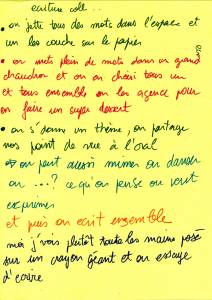 ecriture coll...
• on jette tous des mots dans l'espace et
un les couche sur le papier
• on mets plein de mots dans un grand
chaudron et on en choisi tous un
et tous ensemble on les agence pour
en faire un super dessert
• on s'donne un thème, on partage
nos point de vue à l'oral
on peut aussi mimer ou danser
ou ...? ce qu'on pense ou veut
exprimer
et puis on écrit ensemble
moi j'vois plutôt toutes les mains posé
sur un crayon géant et on essaye
d'ecrire